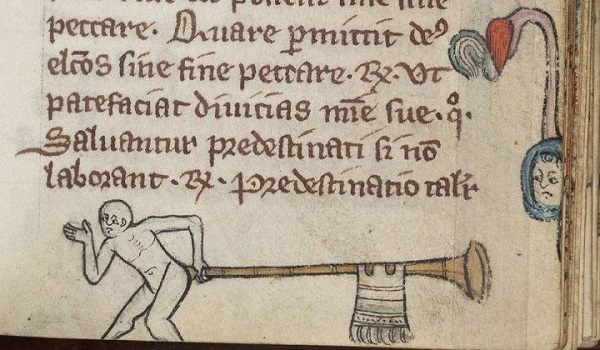 peccare. Quare permittit deꝰ
elc̃os sine fine peccare. R̃. Ut
patefaciat divicias mĩe sue. qͦ.
Saluantur predestinati si nõ
laborant. R̃. Predestinatio talr̃